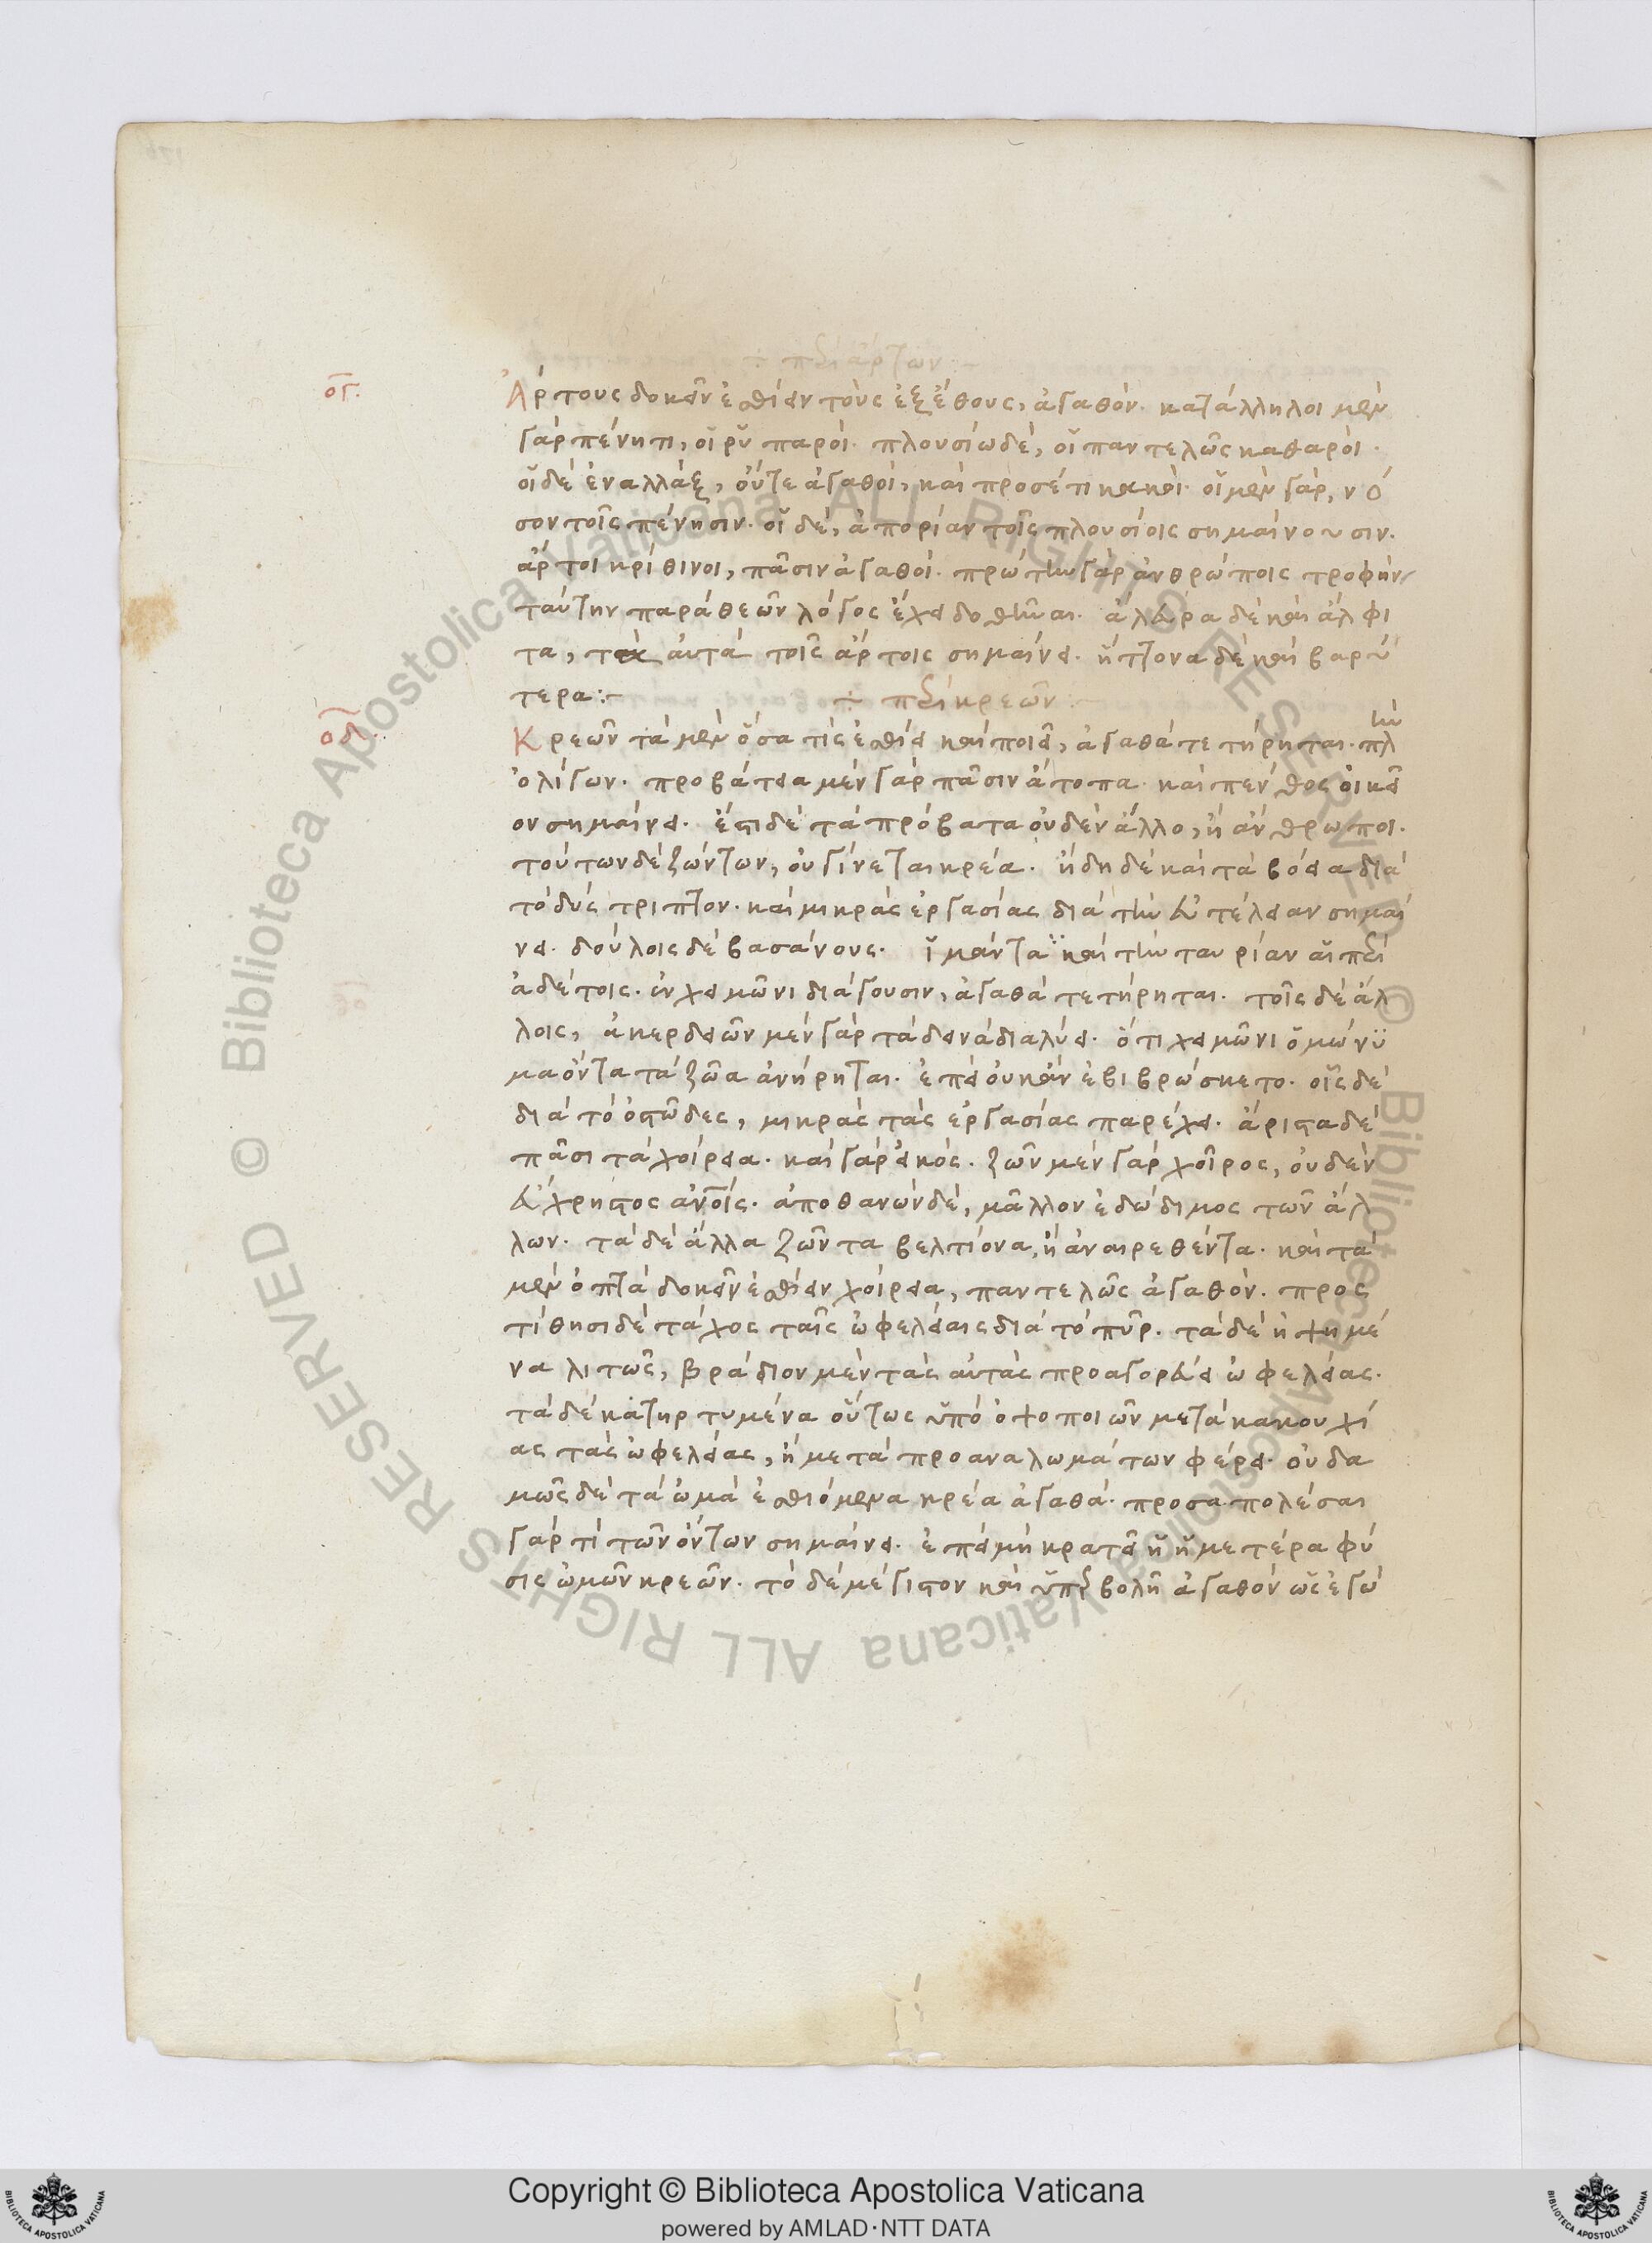 ÷ περὶ ἄρτων :-
ογ. Ἄρτους δοκεῖν ἐσθίειν τοὺς ἐξ ἔθους, ἀγαθόν. κατάλληλοι μὲν
γὰρ πένητι, οἱ ῥυπαροί. πλουσίω δὲ, οἱ παντελῶς καθαροί.
οἱ δὲ ἐναλλὰξ, οὔτε ἀγαθοί, καὶ προσέτι κακοί. οἱ μὲν γὰρ, νό
σον τοῖς πένησιν. οἱ δὲ, ἀπορίαν τοῖς πλουσίοις σημαίνουσιν.
ἄρτοι κρίθινοι, πᾶσιν ἀγαθοί. πρώτην γὰρ ἀνθρώποις τροφὴν
ταύτην παρὰ θεῶν λόγος ἔχει δοθῆναι. ἄλευρα δὲ καὶ ἄλφι
τα, τὰ αὐτὰ τοῖς ἄρτοις σημαίνει. ἥττονα δὲ καὶ βαρύ
τερα :- ÷ περὶ κρεῶν :-
οδ. Κρεῶν τὰ μὲν ὅσα τίς ἐσθίει καὶ ποιεῖ, ἀγαθὰ τετήρηται. πλὴν
ὀλίγων. προβάτεια μὲν γὰρ πᾶσιν ἄτοπα. καὶ πένθος οἰκεῖ
ον σημαίνει. ἔστι δὲ τὰ πρόβατα οὐδὲν ἄλλο, ἢ ἄνθρωποι.
τούτων δὲ ζώντων, οὐ γίνεται κρέα. ἤδη δὲ καὶ τὰ βόεια διὰ
τὸ δύστριπτον. καὶ μικρὰς ἐργασίας διὰ τὴν εὐτέλειαν σημαί
νει. δούλοις δὲ βασάνους. ἱμάντα καὶ τὴν ταυρίαν αἴπερ
ἀδέτοις. ἐν χειμῶνι διάγουσιν, ἀγαθὰ τετήρηται. τοῖς δὲ ἄλ
λοις, ἀκερδεῶν μὲν γὰρ τὰ δεινὰ διαλύει. ὅτι χειμῶνι ὁμώνυ
μα ὄντα τὰ ζῶα ἀνήρηται. ἐπεὶ οὐκ ἂν ἐβιβρώσκετο. οἷς δὲ
διὰ τὸ ὀστῶδες, μικρὰς τὰς ἐργασίας παρέχει. ἄριστα δὲ
πᾶσι τὰ χοίρεια. καὶ γὰρ εἰκός. ζῶν μὲν γὰρ χοῖρος, οὐδὲν
εὔχρηστος ἀνοις. ἀποθανὼν δὲ, μᾶλλον ἐδώδιμος τῶν ἄλ
λων. τὰ δὲ ἄλλα ζῶντα βελτίονα, ἢ ἀναιρεθέντα. καὶ τὰ
μὲν ὀπτὰ δοκεῖν ἐσθίειν χοίρεια, παντελῶς ἀγαθόν. προς
τίθησι δὲ τάχος ταῖς ὠφελείαις διὰ τὸ πῦρ. τὰ δὲ ἡψημέ
να λιτῶς, βράδιον μὲν τὰς αὐτὰς προαγορεύει ὠφελείας.
τὰ δὲ κατηρτυμένα οὕτως ὑπὸ ὀψοποιῶν μετὰ κακουχί
ας τὰς ὠφελείας, ἢ μετὰ προαναλωμάτων φέρει. οὐδα
μῶς δὲ τὰ ὠμὰ ἐσθιόμενα κρέα ἀγαθά. προσαπολέσαι
γὰρ τί τῶν ὄντων σημαίνει. ἐπεὶ μὴ κρατεῖ ἡ ἡμετέρα φύ
σις ὠμῶν κρεῶν. τὸ δὲ μέγιστον καὶ ὑπερβολῆ ἀγαθὸν ὡς ἐγὼ
© Biblioteca Apostolica Vaticana ALL RIGHTS RESERVED
© Biblioteca Apostolica Vaticana ALL RIGHTS RESERVED
BIBLIOTECA APOSTOLICA VATICANA
Copyright © Biblioteca Apostolica Vaticana
powered by AMLAD·NTT DATA
BIBLIOTECA APOSTOLICA VATICANA